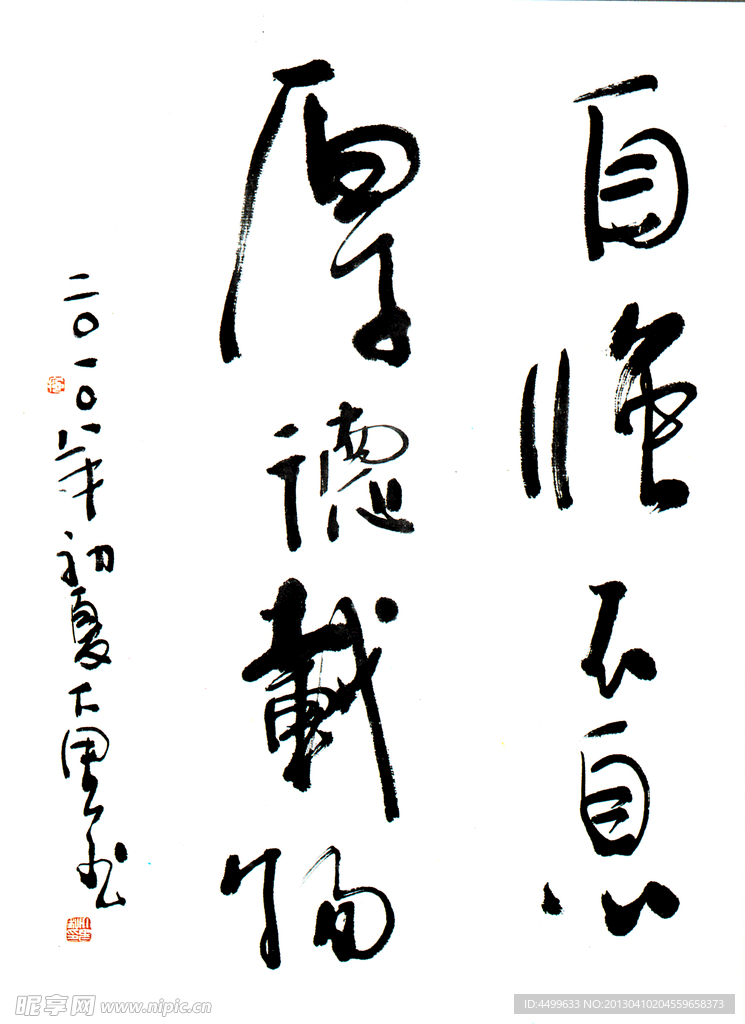 自強不息
厚德載物
二〇一〇年初夏
昵享网 www.nipic.cn
ID:4499633 NO:20130410204559658373